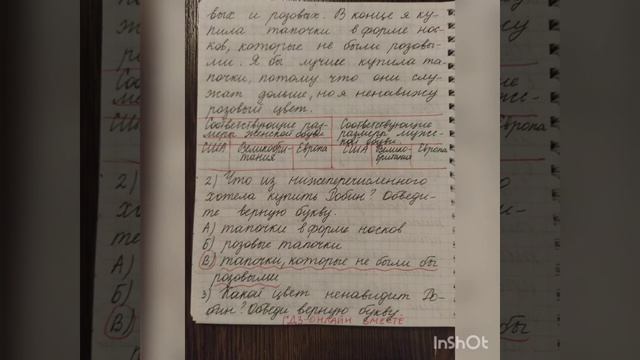 вых и розовых. В конце я ку-
пила тапочки в форме нос-
ков, которые не были розовы-
ми. Я бы лучше купила та-
почки, потому что они слу-
жат дольше, но я ненавижу
розовый цвет.
Соответствующие раз-
меры женской обуви
Соответствующие
размеры мужс-
кой обуви
США Великобри-
тания Европа
США Велико-
британия Европа
2) Что из нижеперечисленного
хотела купить Робин? Обведи-
те верную букву.
А) тапочки в форме носков
Б) розовые тапочки
В) тапочки, которые не были бы
розовыми
3) Какой цвет ненавидит Ро-
бин? Обведи верную букву.
ГДЗ-ОНЛАЙН ВМЕСТЕ
InShOt